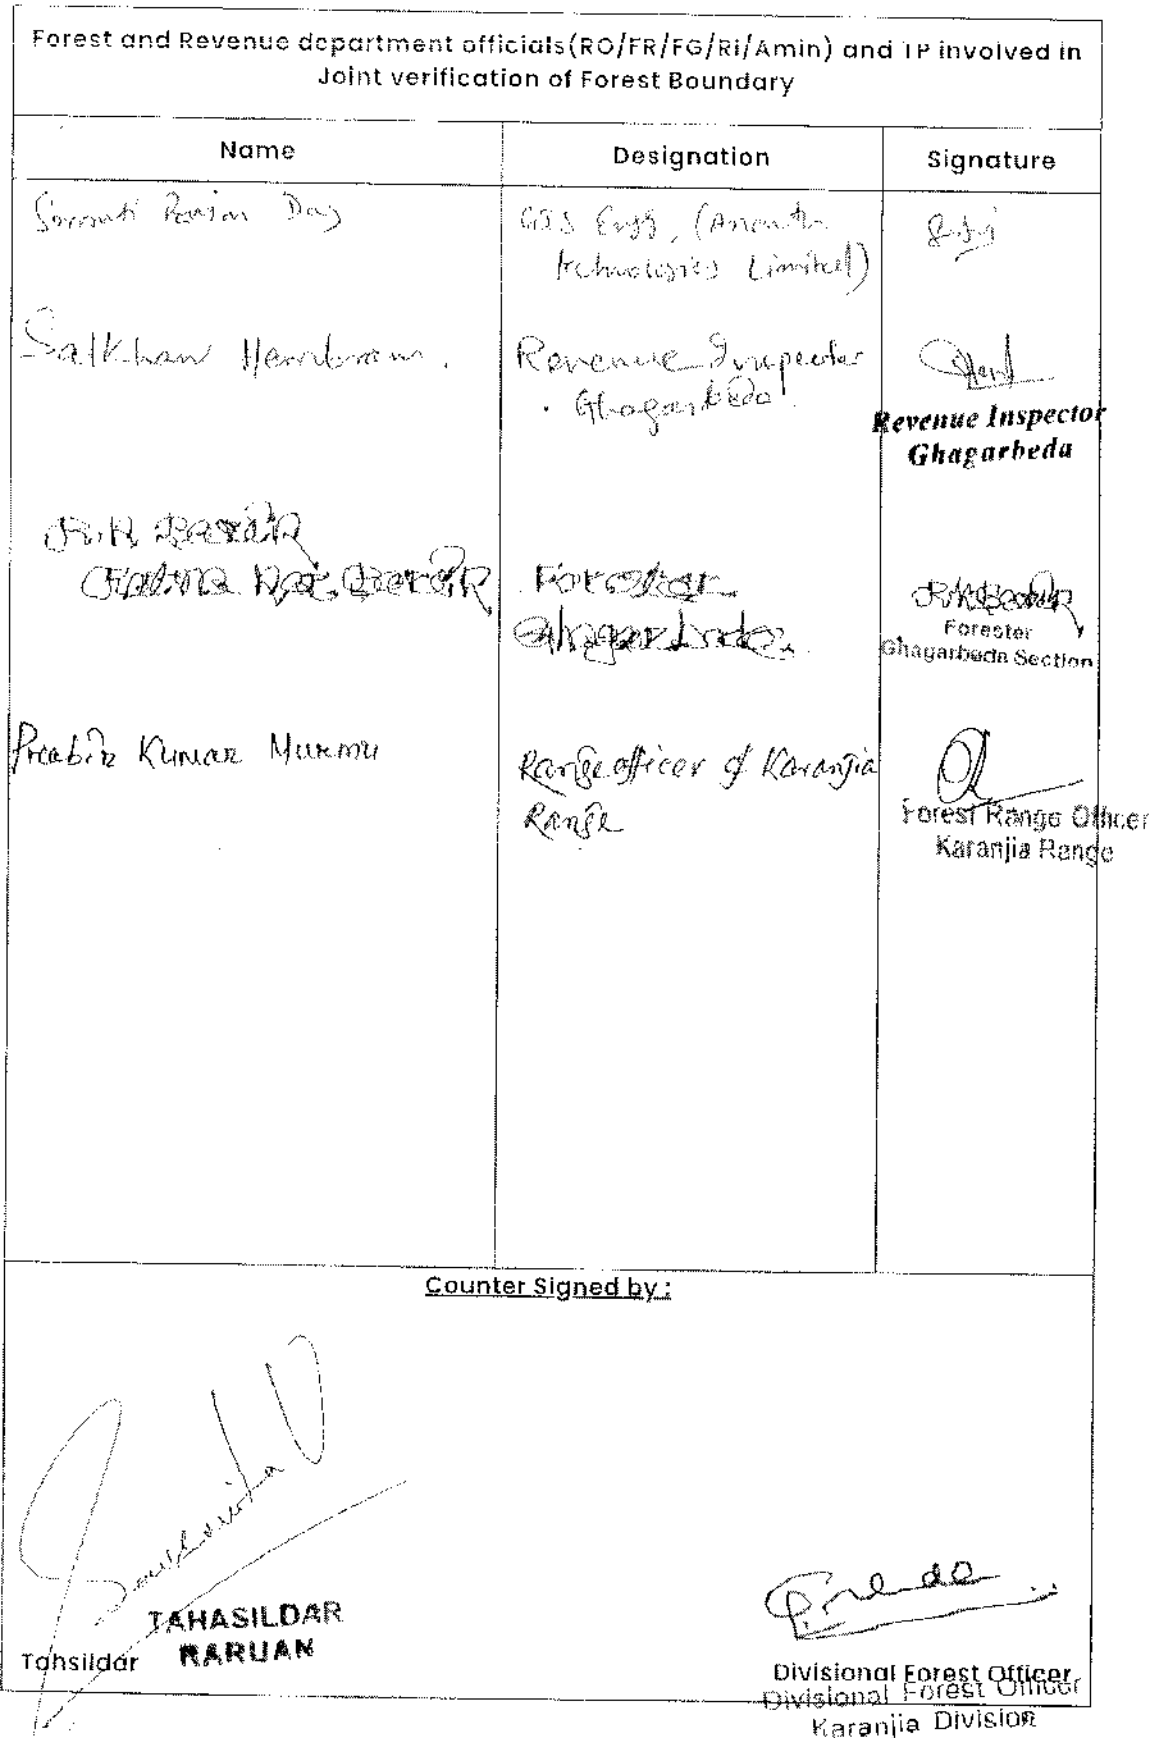 Forest and Revenue department officials(RO/FR/FG/RI/Amin) and TP involved in
Joint verification of Forest Boundary
Name Designation Signature
Ranjan Das GIS Engg, (Ananth
Technologies Limited)
Salkhan Hembram. Revenue Inspector
Ghagarbeda.
Revenue Inspector
Ghagarbeda
R.K. Barik
Raj Barik Forester
Ghagarbeda.
R.K. Barik
Forester
Ghagarbeda Section
Prabir Kumar Murmu Range officer of Karanjia
Range
Forest Range Officer
Karanjia Range
Counter Signed by :
TAHASILDAR
RARUAN
Tahsildar
Divisional Forest Officer
Divisional Forest Officer
Karanjia Division